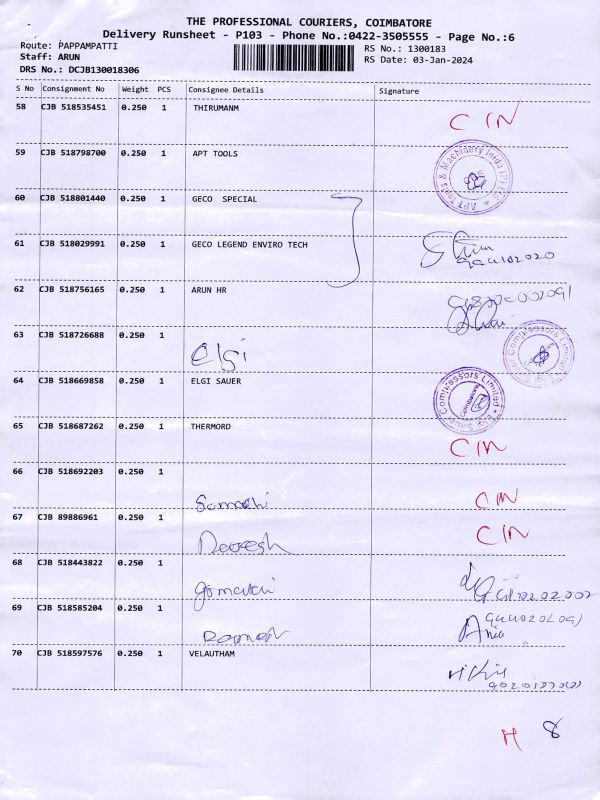 THE PROFESSIONAL COURIERS, COIMBATORE
Delivery Runsheet - P103 - Phone No.:0422-3505555 - Page No.:6
Route: PAPPAMPATTI RS No.: 1300183
Staff: ARUN RS Date: 03-Jan-2024
DRS No.: DCJB130018306
S No Consignment No Weight PCS Consignee Details Signature
58 CJB 518535451 0.250 1 THIRUMANM CIN
59 CJB 518798700 0.250 1 APT TOOLS
60 CJB 518801440 0.250 1 GECO SPECIAL
61 CJB 518029991 0.250 1 GECO LEGEND ENVIRO TECH
62 CJB 518756165 0.250 1 ARUN HR
63 CJB 518726688 0.250 1 Elgi
64 CJB 518669858 0.250 1 ELGI SAUER
Elgi Sauer Compressors Limited
65 CJB 518687262 0.250 1 THERMORD CIN
66 CJB 518692203 0.250 1 CIN
67 CJB 89886961 0.250 1 CIN
68 CJB 518443822 0.250 1 gomathi
69 CJB 518585204 0.250 1 Ramesh
70 CJB 518597576 0.250 1 VELAUTHAM
H 8